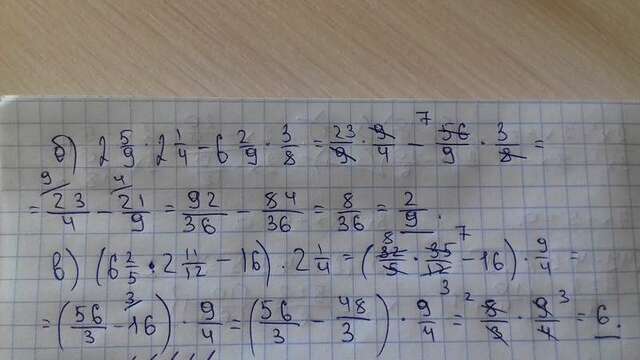 б) 2 5/9 · 2 1/4 − 6 2/9 · 3/8 = 23/9 · 9/4 − 56/9 · 3/8 =
= 23/4 − 21/9 = 92/36 − 84/36 = 8/36 = 2/9.
в) (6 2/5 · 2 11/12 − 16) · 2 1/4 = (32/5 · 35/12 − 16) · 9/4 =
= (56/3 − 16) · 9/4 = (56/3 − 48/3) · 9/4 = 8/3 · 9/4 = 6.